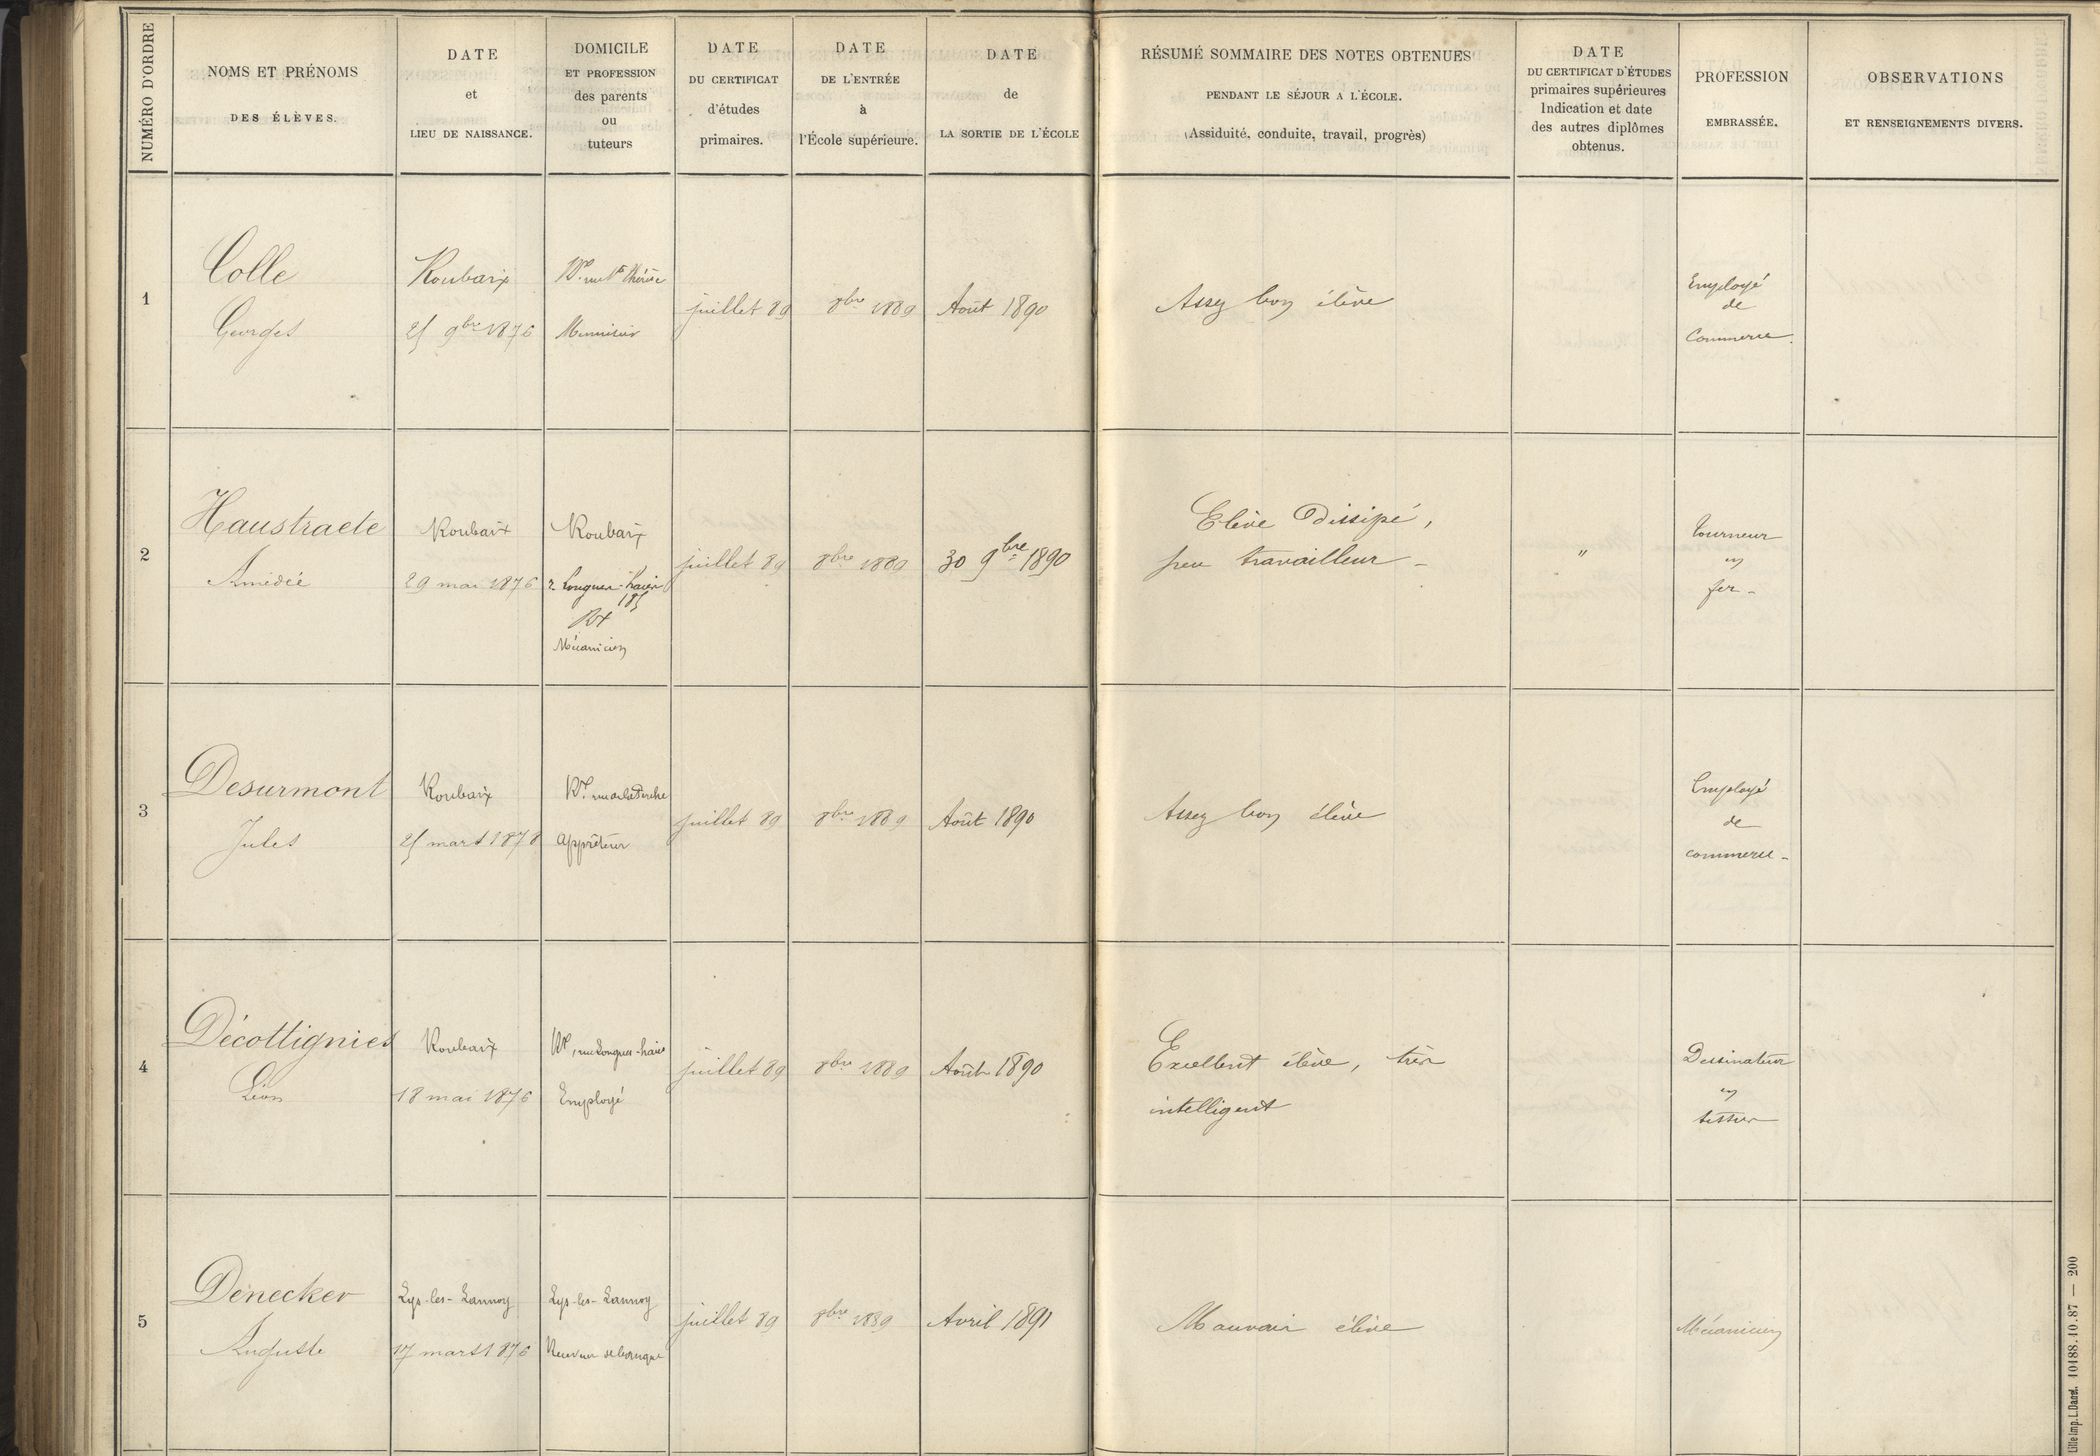 NUMÉRO D'ORDRE
NOMS ET PRÉNOMS
DES ÉLÈVES.
DATE
et
LIEU DE NAISSANCE.
DOMICILE
ET PROFESSION
des parents
ou
tuteurs
DATE
DU CERTIFICAT
d'études
primaires.
DATE
DE L'ENTRÉE
à
l'École supérieure.
DATE
de
LA SORTIE DE L'ÉCOLE
RÉSUMÉ SOMMAIRE DES NOTES OBTENUES
PENDANT LE SÉJOUR A L'ÉCOLE.
(Assiduité, conduite, travail, progrès)
DATE
DU CERTIFICAT D'ÉTUDES
primaires supérieures
Indication et date
des autres diplômes
obtenus.
PROFESSION
EMBRASSÉE.
OBSERVATIONS
ET RENSEIGNEMENTS DIVERS.
1
Colle
Georges
Roubaix
25 9bre 1876
Rx rue Ste Thérèse
Menuisier
juillet 89
8bre 1889
Août 1890
Assez bon élève
Employé
de
Commerce.
2
Haustraete
Amédée
Roubaix
29 mai 1876
Roubaix
r. Longues-haies
185
Rx
Mécanicien
juillet 89
8bre 1889
30 9bre 1890
Elève Dissipé,
peu travailleur -
"
Tourneur
en
fer -
3
Desurmont
Jules
Roubaix
25 mars 1878
Rx rue de la Perche
Apprêteur
juillet 89
8bre 1889
Août 1890
Assez bon élève
Employé
de
commerce -
4
Décottignies
Léon
Roubaix
18 mai 1876
Rx, rue Longues-haies
Employé
juillet 89
8bre 1889
Août 1890
Excellent élève, très
intelligent
Dessinateur
en
tissus
5
Denecker
Auguste
Lys-les-Lannoy
17 mars 1876
Lys-les-Lannoy
Receveur de banque
juillet 89
8bre 1889
Avril 1891
Mauvais élève
Mécanicien
Lille Imp. L. Danel. 10488.10.87 — 200